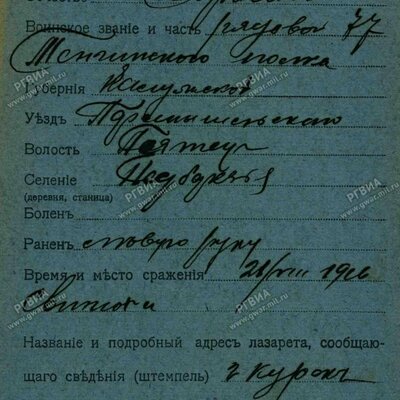 Воинское званіе и часть рядовой 77
Тенгинского полка
Губернія Калужской
Уѣздъ Перемишельскаго
Волость
Селеніе
(деревня, станица)
Боленъ
Раненъ въ левую руку
Время и мѣсто сраженія 28/VIII 1916
Названіе и подробный адресъ лазарета, сообщаю-
щаго свѣдѣнія (штемпель) г Курскъ
РГВИА
www.gwar.mil.ru